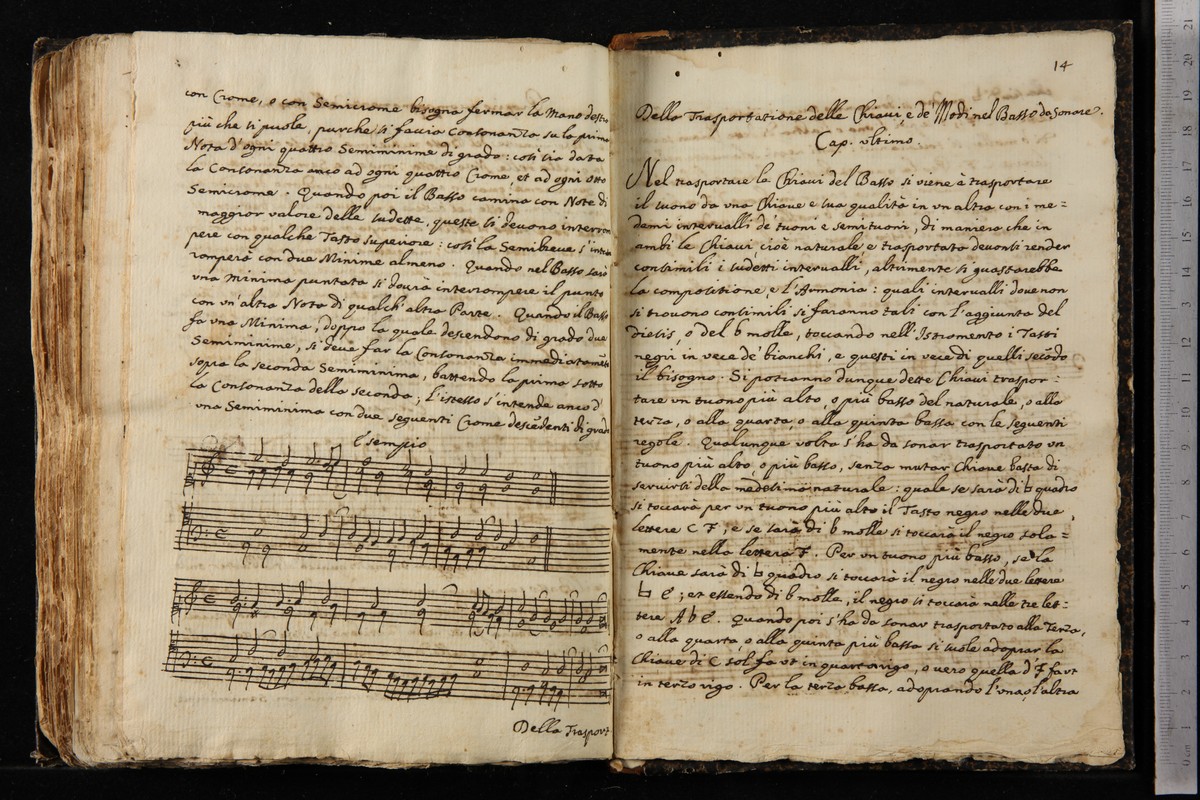 con Crome, o con Semicrome bisogna fermar la Mano destra
più che si puole, purche si faccia Consonanza su la prima
Nota d'ogni quattro Semiminime di grado: così sia data
la Consonanza anco ad ogni quattro Crome, et ad ogni otto
Semicrome. Quando poi il Basso camina con Note di
maggior valore delle sudette, queste si devono interrom
pere con qualche Tasto superiore: così la Semibreve s'inter
romperà con due Minime almeno. Quando nel Basso sarà
una Minima puntata si dourà interrompere il punto
con un'altra Nota di qualch'altra Parte. Quando il Basso
fa una Minima, doppo la quale descendono di grado due
Semiminime, si deve far la Consonanza immediatamẽte
sopra la seconda Semiminima, battendo la prima sotto
la Consonanza della seconda; l'istesso s'intende anco d'
una Semiminima con due seguenti Crome descẽdenti di grado
Esempio
Della Trasport
14
Della Trasportatione delle Chiaui, e de' Modi nel Basso da Sonare.
Cap. ultimo.
Nel trasportare le Chiaui del Basso si viene à trasportare
il tuono da vna Chiaue e sua qualità in vn altra con i me=
demi intervalli de' tuoni e semituoni, di maniera che in
ambi le Chiaui cioè naturale e trasportata devonsi render
consimili i sudetti intervalli, altrimente si guastarebbe
la compositione, e l'Armonia: quali intervalli doue non
si trouono consimili si faranno tali con l'aggiunta del
diesis, o del b molle, toccando nell'Istromento i Tasti
negri in vece de' bianchi, e questi in vece di quelli secõdo
il bisogno. Si potranno dunque dette Chiaui traspor=
tare un tuono più alto, o più basso del naturale, o alla
terza, o alla quarta, o alla quinta bassa con le seguenti
regole. Qualunque volta s'ha da sonar trasportato un
tuono più alto, o più basso, senza mutar Chiaue basta di
servirsi della medesima naturale: quale se sarà di ♮ quadro
si toccarà per un tuono più alto il Tasto negro nelle due
lettere C F; e se sarà di b molle si toccarà il negro sola=
mente nella lettera F. Per un tuono più basso, se la
Chiaue sarà di ♮ quadro si toccarà il negro nelle due lettere
♮ E; et essendo di b molle, il negro si toccarà nelle tre let=
tere A b E. Quando poi s'ha da sonar trasportato alla Terza,
o alla quarta, o alla quinta più bassa si suole adoprar la
Chiaue di C sol fa ut in quarto rigo, o uero quella d'F faut
in terzo rigo. Per la terza bassa, adoprando l'una o l'altra